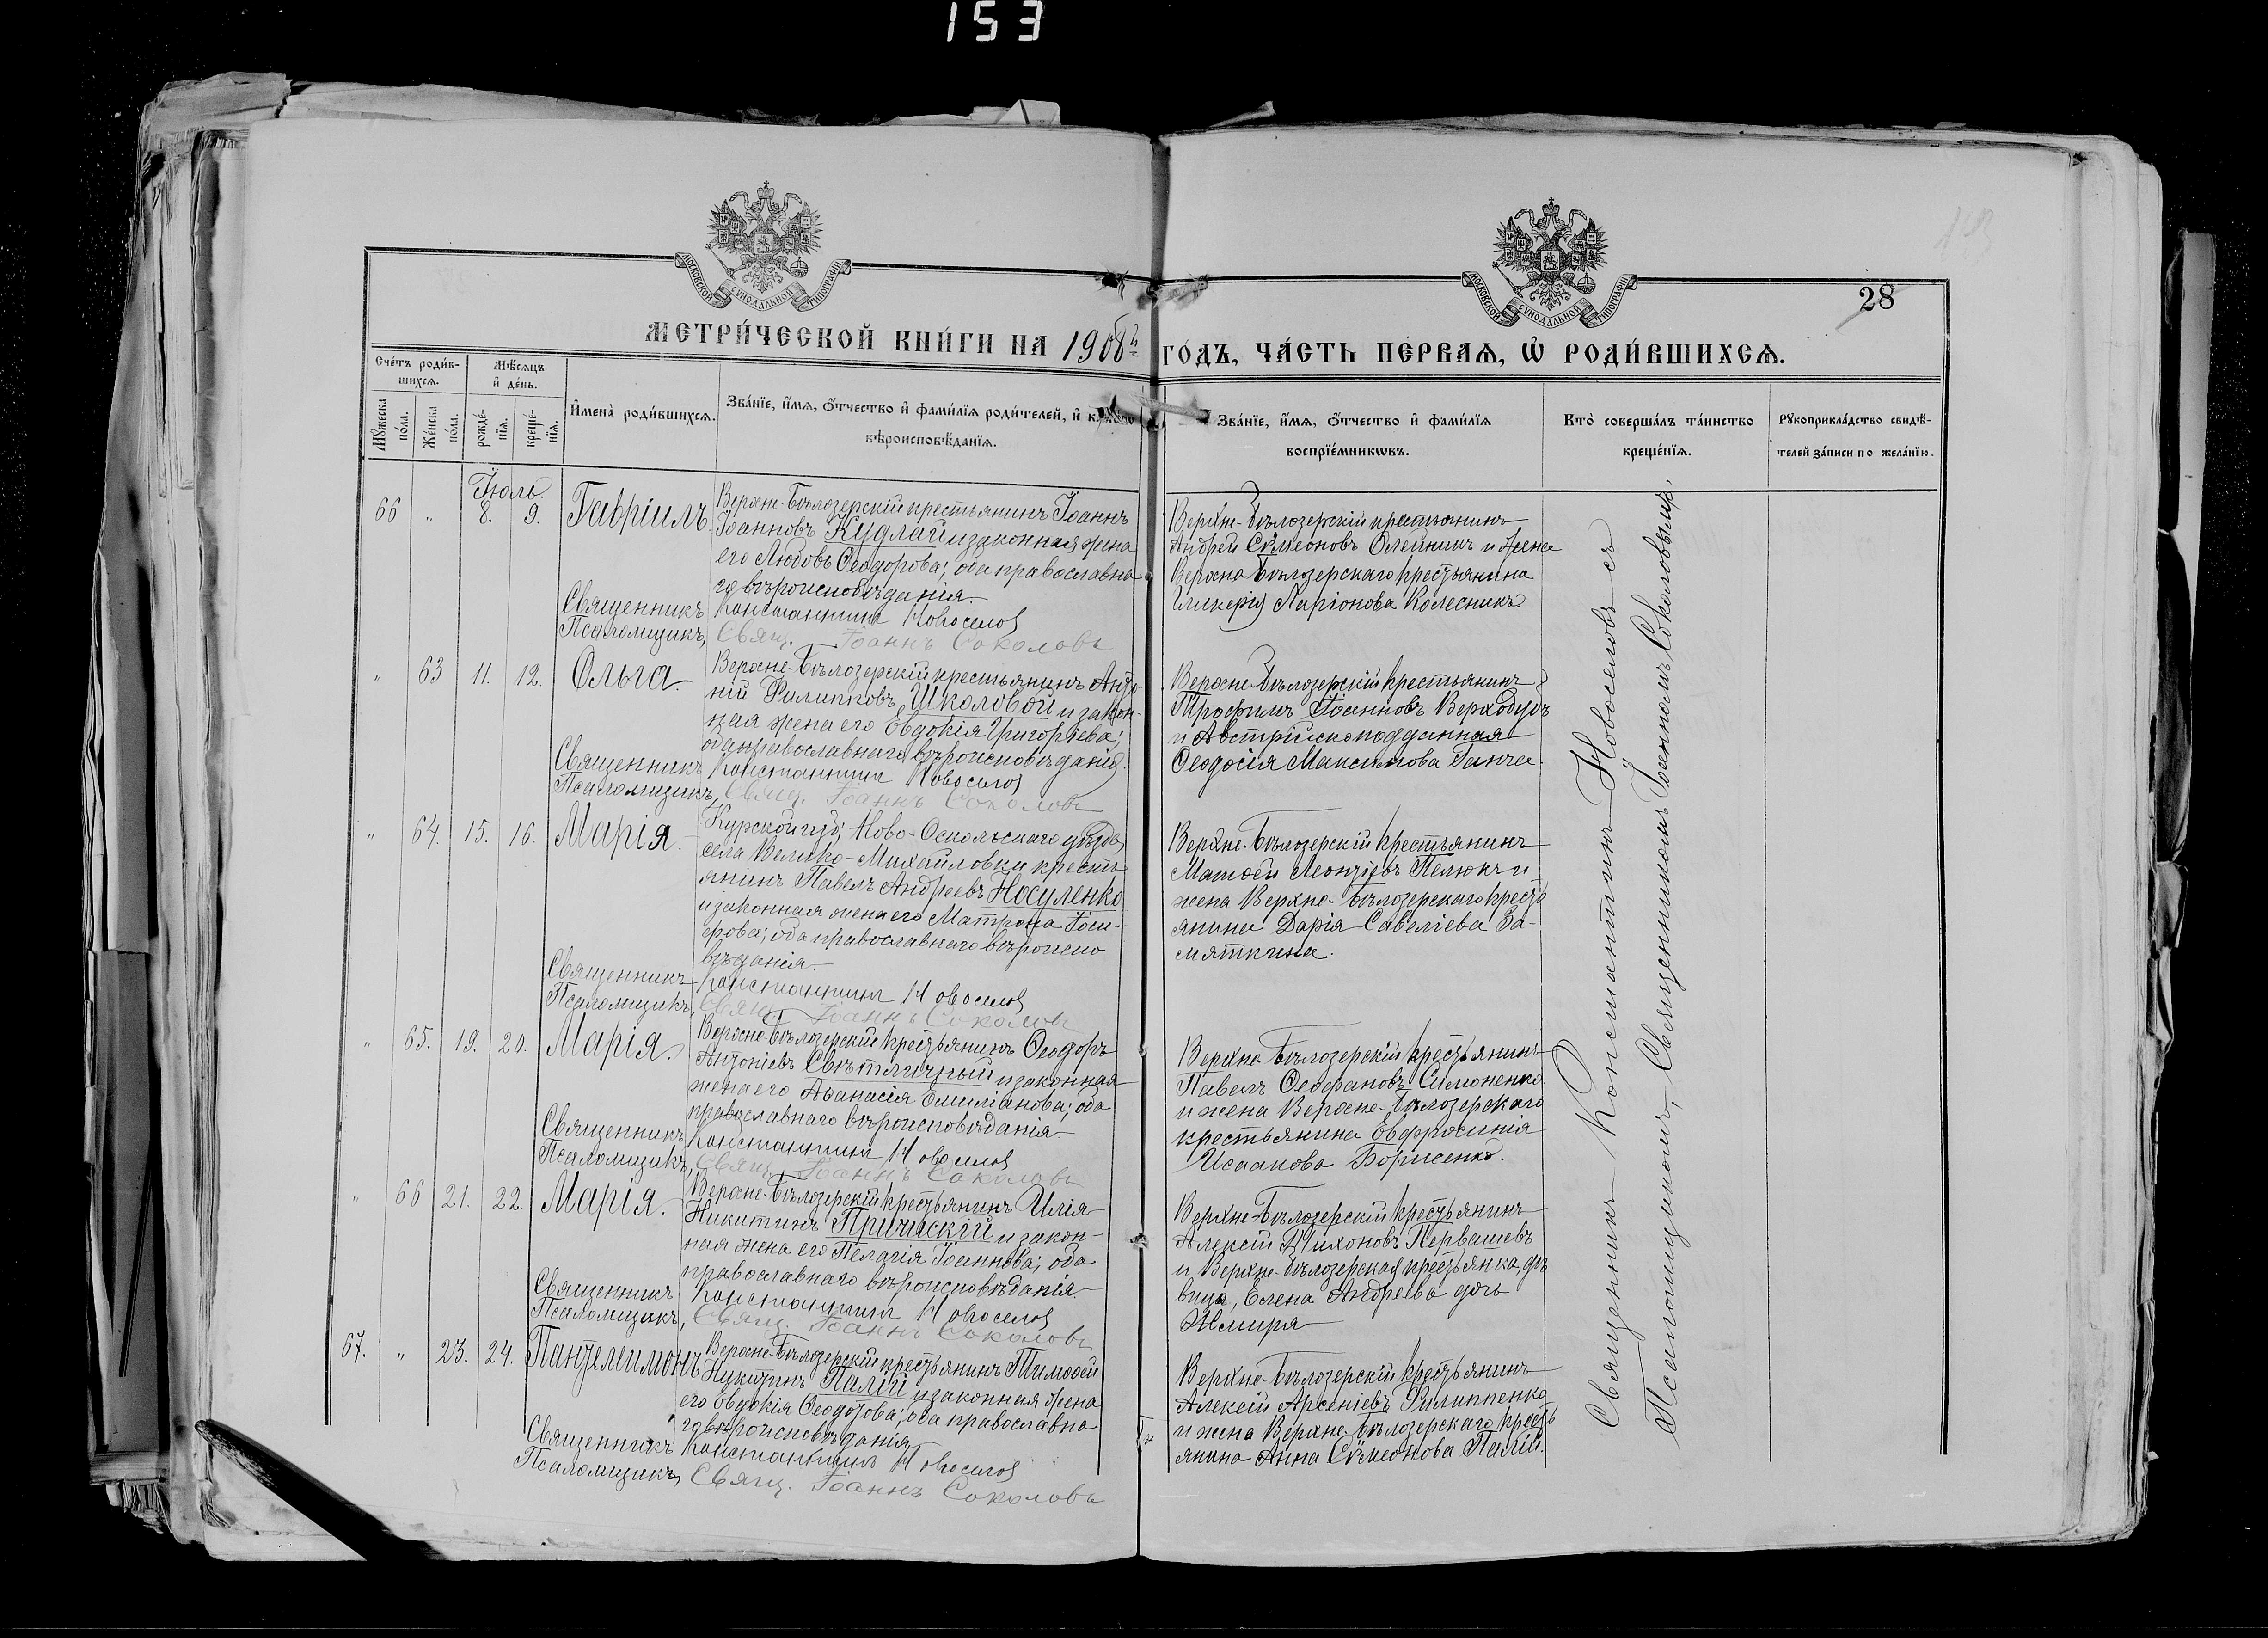 153
МОСКОВСКОЙ СѴНОДАЛЬНОЙ ТИПОГРАФІИ
МОСКОВСКОЙ СѴНОДАЛЬНОЙ ТИПОГРАФІИ
28
МЕТРИ́ЧЕСКОЙ КНИ́ГИ НА 1908й ГО́ДЪ, ЧА́СТЬ ПЕ́РВАѦ, Ѡ҆ РОДИ́ВШИХСѦ.
Сче́тъ роди́в-
шихсѧ.
Мѣ́сѧцъ
и҆ де́нь.
Мꙋ́жеска
по́ла.
Же́нска
по́ла.
рожде́-
нїѧ.
креще́-
нїѧ.
И҆мена̀ роди́вшихсѧ.
Зва́нїе, и҆́мѧ, ѻ҆́тчество и҆ фами́лїѧ роди́телей, и҆
вѣроисповѣ́данїѧ.
Зва́нїе, и҆́мѧ, ѻ҆́тчество и҆ фами́лїѧ
воспрїе́мникѡвъ.
Кто̀ соверша́лъ та́инство
креще́нїѧ.
Рꙋкоприкла́дство свидѣ́-
телей за́писи по жела́нїю.
Іюль.
66 " 8. 9. Гавріилъ.
Верхне-Бѣлозерскій крестьянинъ Іоаннъ
Іоанновъ Кудлай и законная жена
его Любовь Ѳеодорова; оба православна
го вѣроисповѣданія.
Священникъ Константинъ Новоселов
Псаломщикъ, Свящ. Іоаннъ Соколовъ
Верхне-Бѣлозерскій крестьянинъ
Андрей Сѵмеоновъ Олейникъ и жена
Верхне-Бѣлозерскаго крестьянина
Гликерія Ларіонова Колесникъ
" 63 11. 12. Ольга.
Верхне-Бѣлозерскій крестьянинъ Анто-
ній Филипповъ Школовой и закон-
ная жена его Евдокія Григорьева;
оба православнаго вѣроисповѣданія.
Священникъ Константинъ Новоселов
Псаломщикъ, Свящ. Іоаннъ Соколовъ
Верхне-Бѣлозерскій крестьянинъ
Трофимъ Іоанновъ Верходубъ
и Австрійскоподданная
Ѳеодосія Максимова Ганча.
" 64. 15. 16. Марія.
Курской губ; Ново-Оскольскаго уѣзда,
села Велико-Михайловки кресть-
янинъ Павелъ Андреевъ Носуленко
и законная жена его Матрона Іоси-
фова; оба православнаго вѣроиспо
вѣданія.
Священникъ Константинъ Новоселов
Псаломщикъ, Свящ. Іоаннъ Соколовъ
Верхне-Бѣлозерскій крестьянинъ
Матѳей Леонтіевъ Пелюхъ и
жена Верхне-Бѣлозерскаго кресть
янина Дарія Савеліева За-
мяткина.
" 65. 19. 20. Марія.
Верхне-Бѣлозерскій крестьянинъ Ѳеодоръ
Антоніевъ Свѣтличный и законная
жена его Аѳанасія Емиліанова; оба
православнаго вѣроисповѣданія.
Священникъ Константинъ Новоселов
Псаломщикъ, Свящ. Іоаннъ Соколовъ
Верхне-Бѣлозерскій крестьянинъ
Павелъ Ѳеофановъ Симоненко
и жена Верхне-Бѣлозерскаго
крестьянина Евфросинія
Исаакова Борисенко.
" 66 21. 22. Марія.
Верхне-Бѣлозерскій крестьянинъ Илія
Никитинъ и закон-
ная жена его Пелагія Іоаннова; оба
православнаго вѣроисповѣданія.
Священникъ Константинъ Новоселов
Псаломщикъ, Свящ. Іоаннъ Соколовъ
Верхне-Бѣлозерскій крестьянинъ
Алексій Тихоновъ Первашевъ
и Верхне-Бѣлозерская крестьянка, дѣ
вица, Елена Андреева дочь
Жмиря
67. " 23. 24. Пантелеимонъ.
Верхне-Бѣлозерскій крестьянинъ Тимоѳей
Никитинъ Палій и законная жена
его Евдокія Ѳеодотова; оба православна
го вѣроисповѣданія.
Священникъ Константинъ Новоселов
Псаломщикъ, Свящ. Іоаннъ Соколовъ
Верхне-Бѣлозерскій крестьянинъ
Алексій Арсеніевъ Филиппенко
и жена Верхне-Бѣлозерскаго кресть
янина Анна Сѵмеонова Палій.
Священникъ Константинъ Новоселовъ съ
Псаломщикомъ, Священникомъ Іоанномъ Соколовымъ.